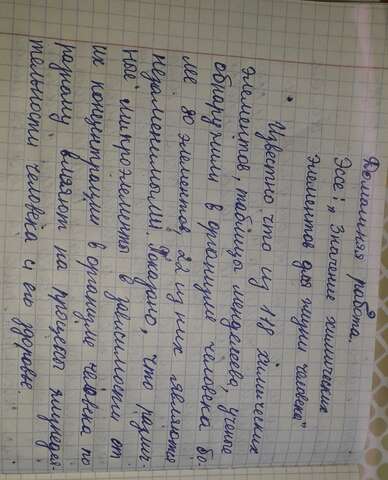 Домашняя работа.
Эссе: „Значение химических
элементов для жизни человека"
Известно что из 118 химических
элементов, таблицы менделеева, ученые
обнаружили в организме человека бо-
лее 80 элементов, 22 из них являются
незаменимыми. Показано, что различ-
ные микроэлементы в зависимости от
их концентрации в организме человека по
разному влияют на процессы жизнедея-
тельности человека и его здоровье.